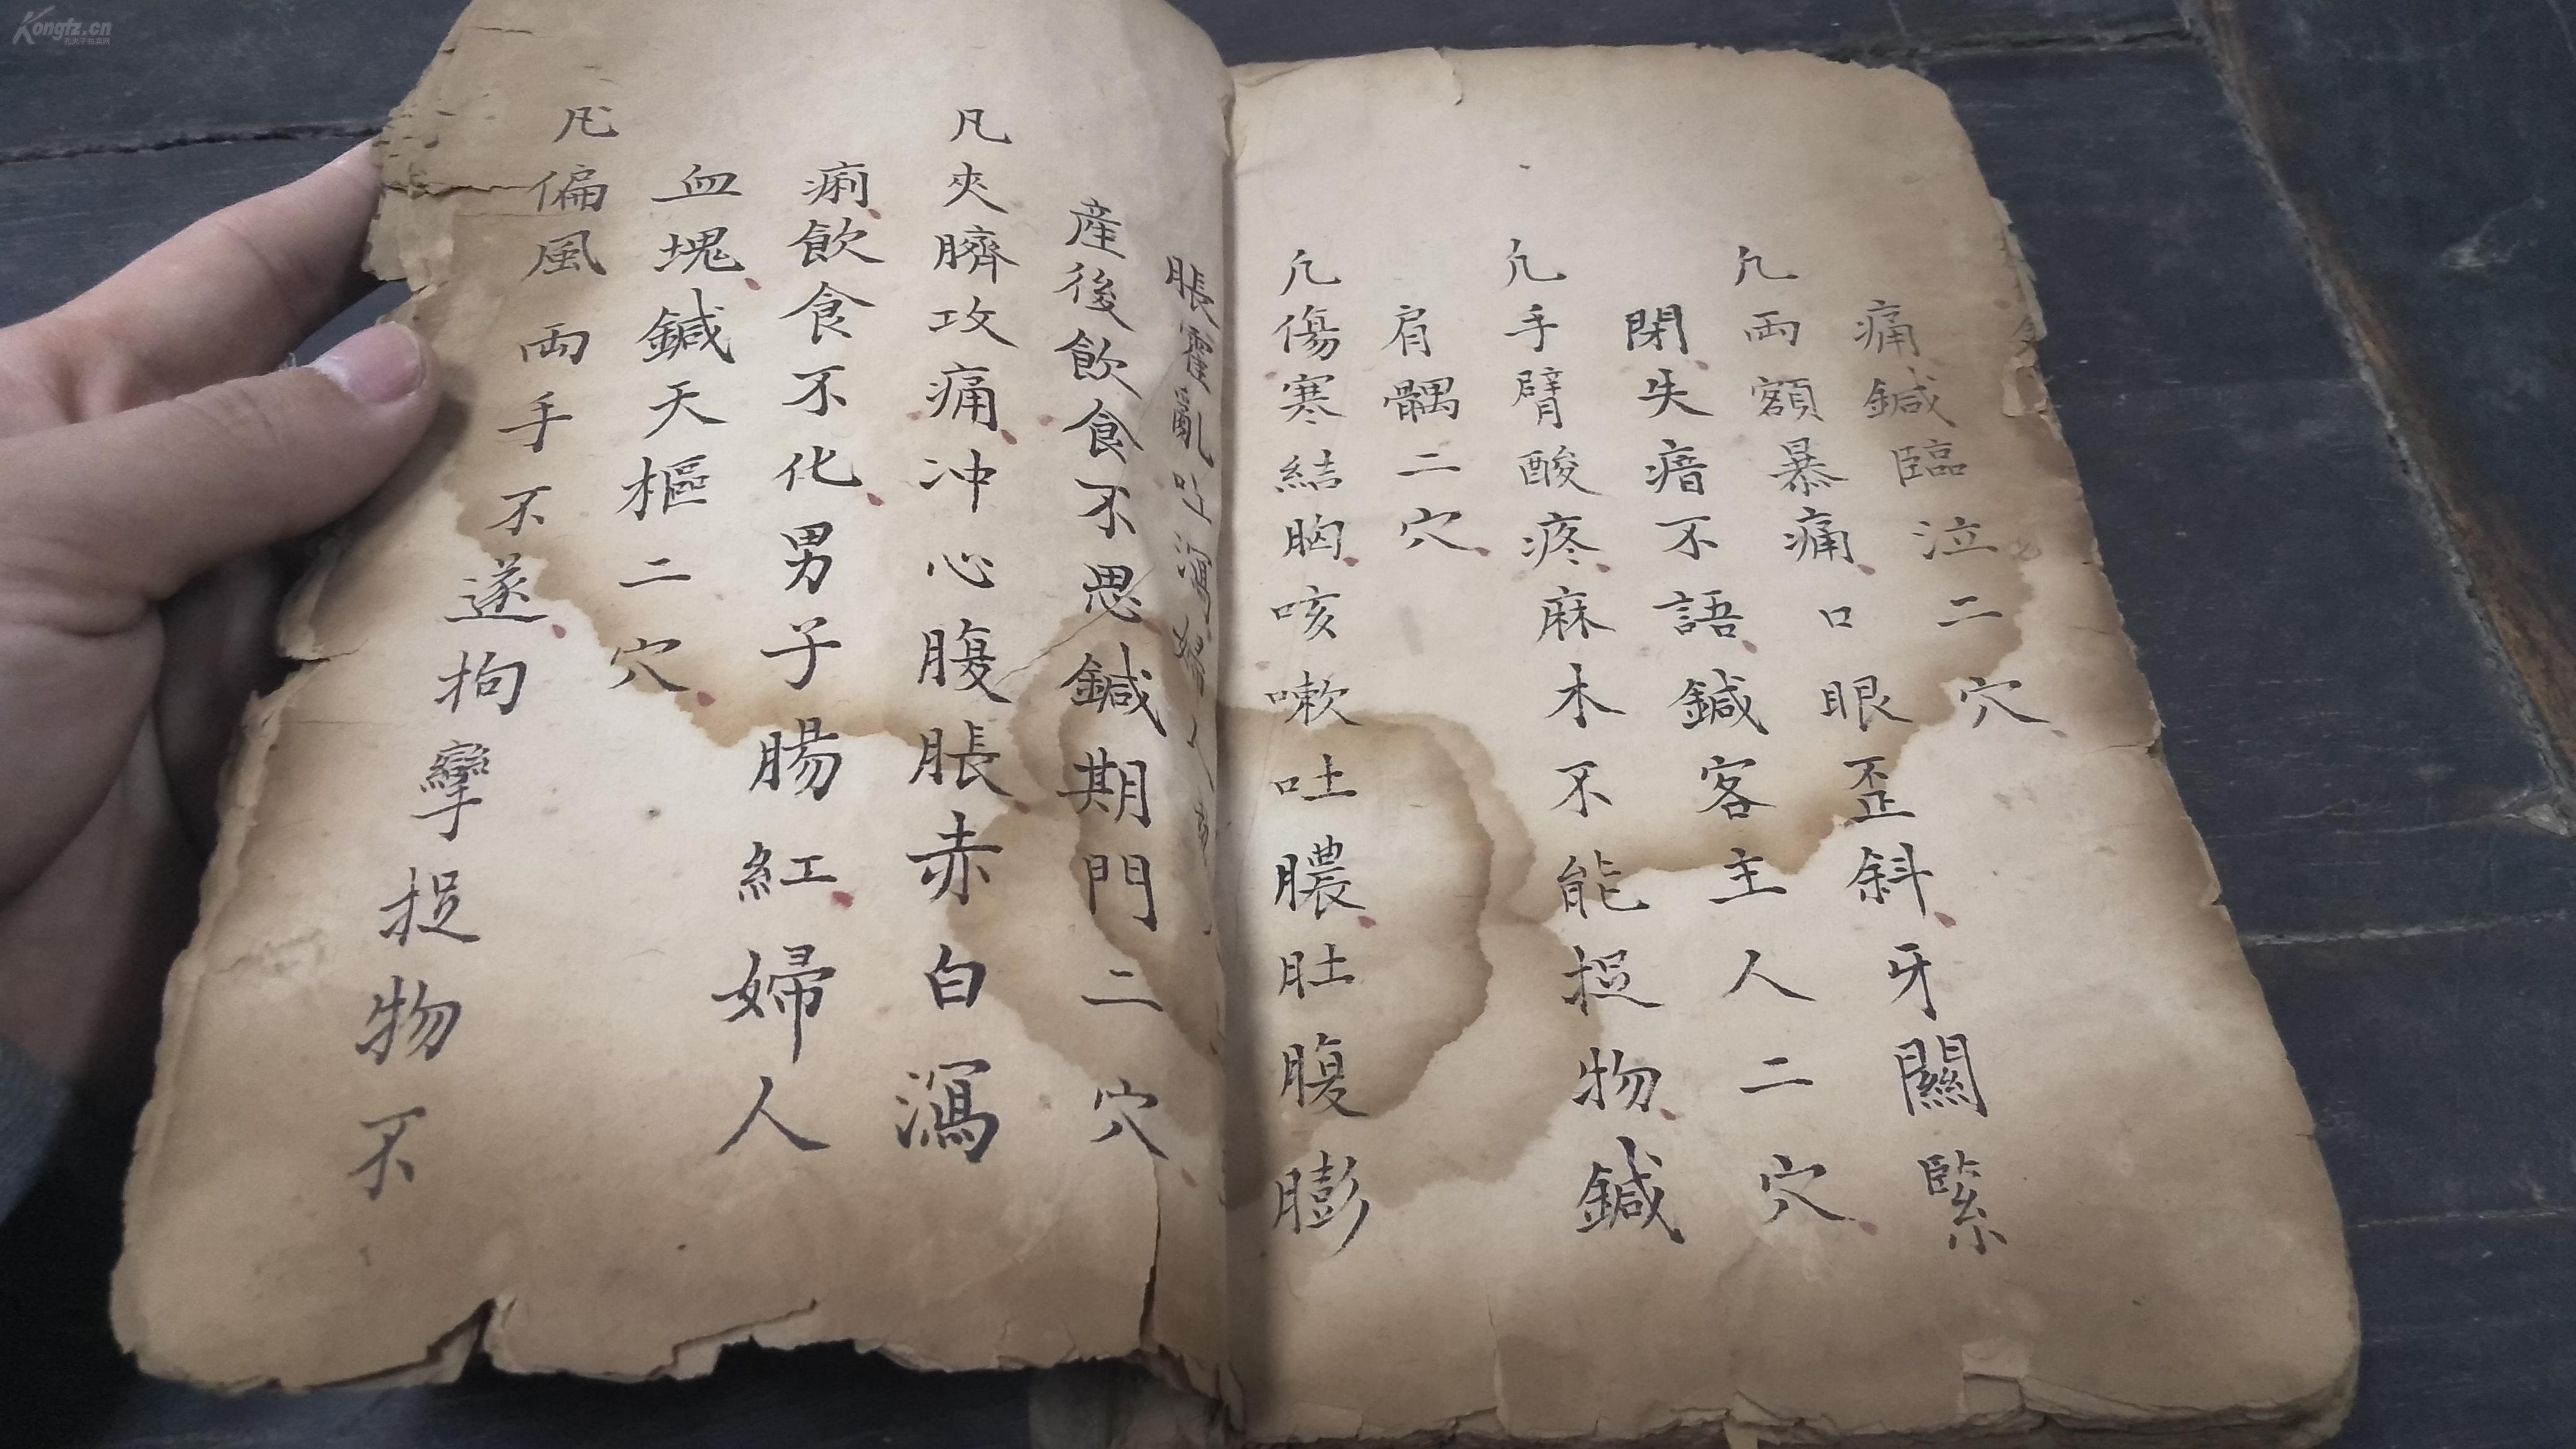 痛鍼臨泣二穴
凢両額暴痛口眼歪斜牙關緊
閉失瘖不語鍼客主人二穴
凢手臂酸疼麻木不能捉物鍼
肩髃二穴
凢傷寒結胸咳嗽吐膿肚腹膨
脹霍亂吐瀉婦人
産後飲食不思鍼期門二穴
凡夾臍攻痛冲心腹脹赤白瀉
痢飲食不化男子腸紅婦人
血塊鍼天樞二穴
凡偏風両手不遂拘攣捉物不
Kongfz.cn